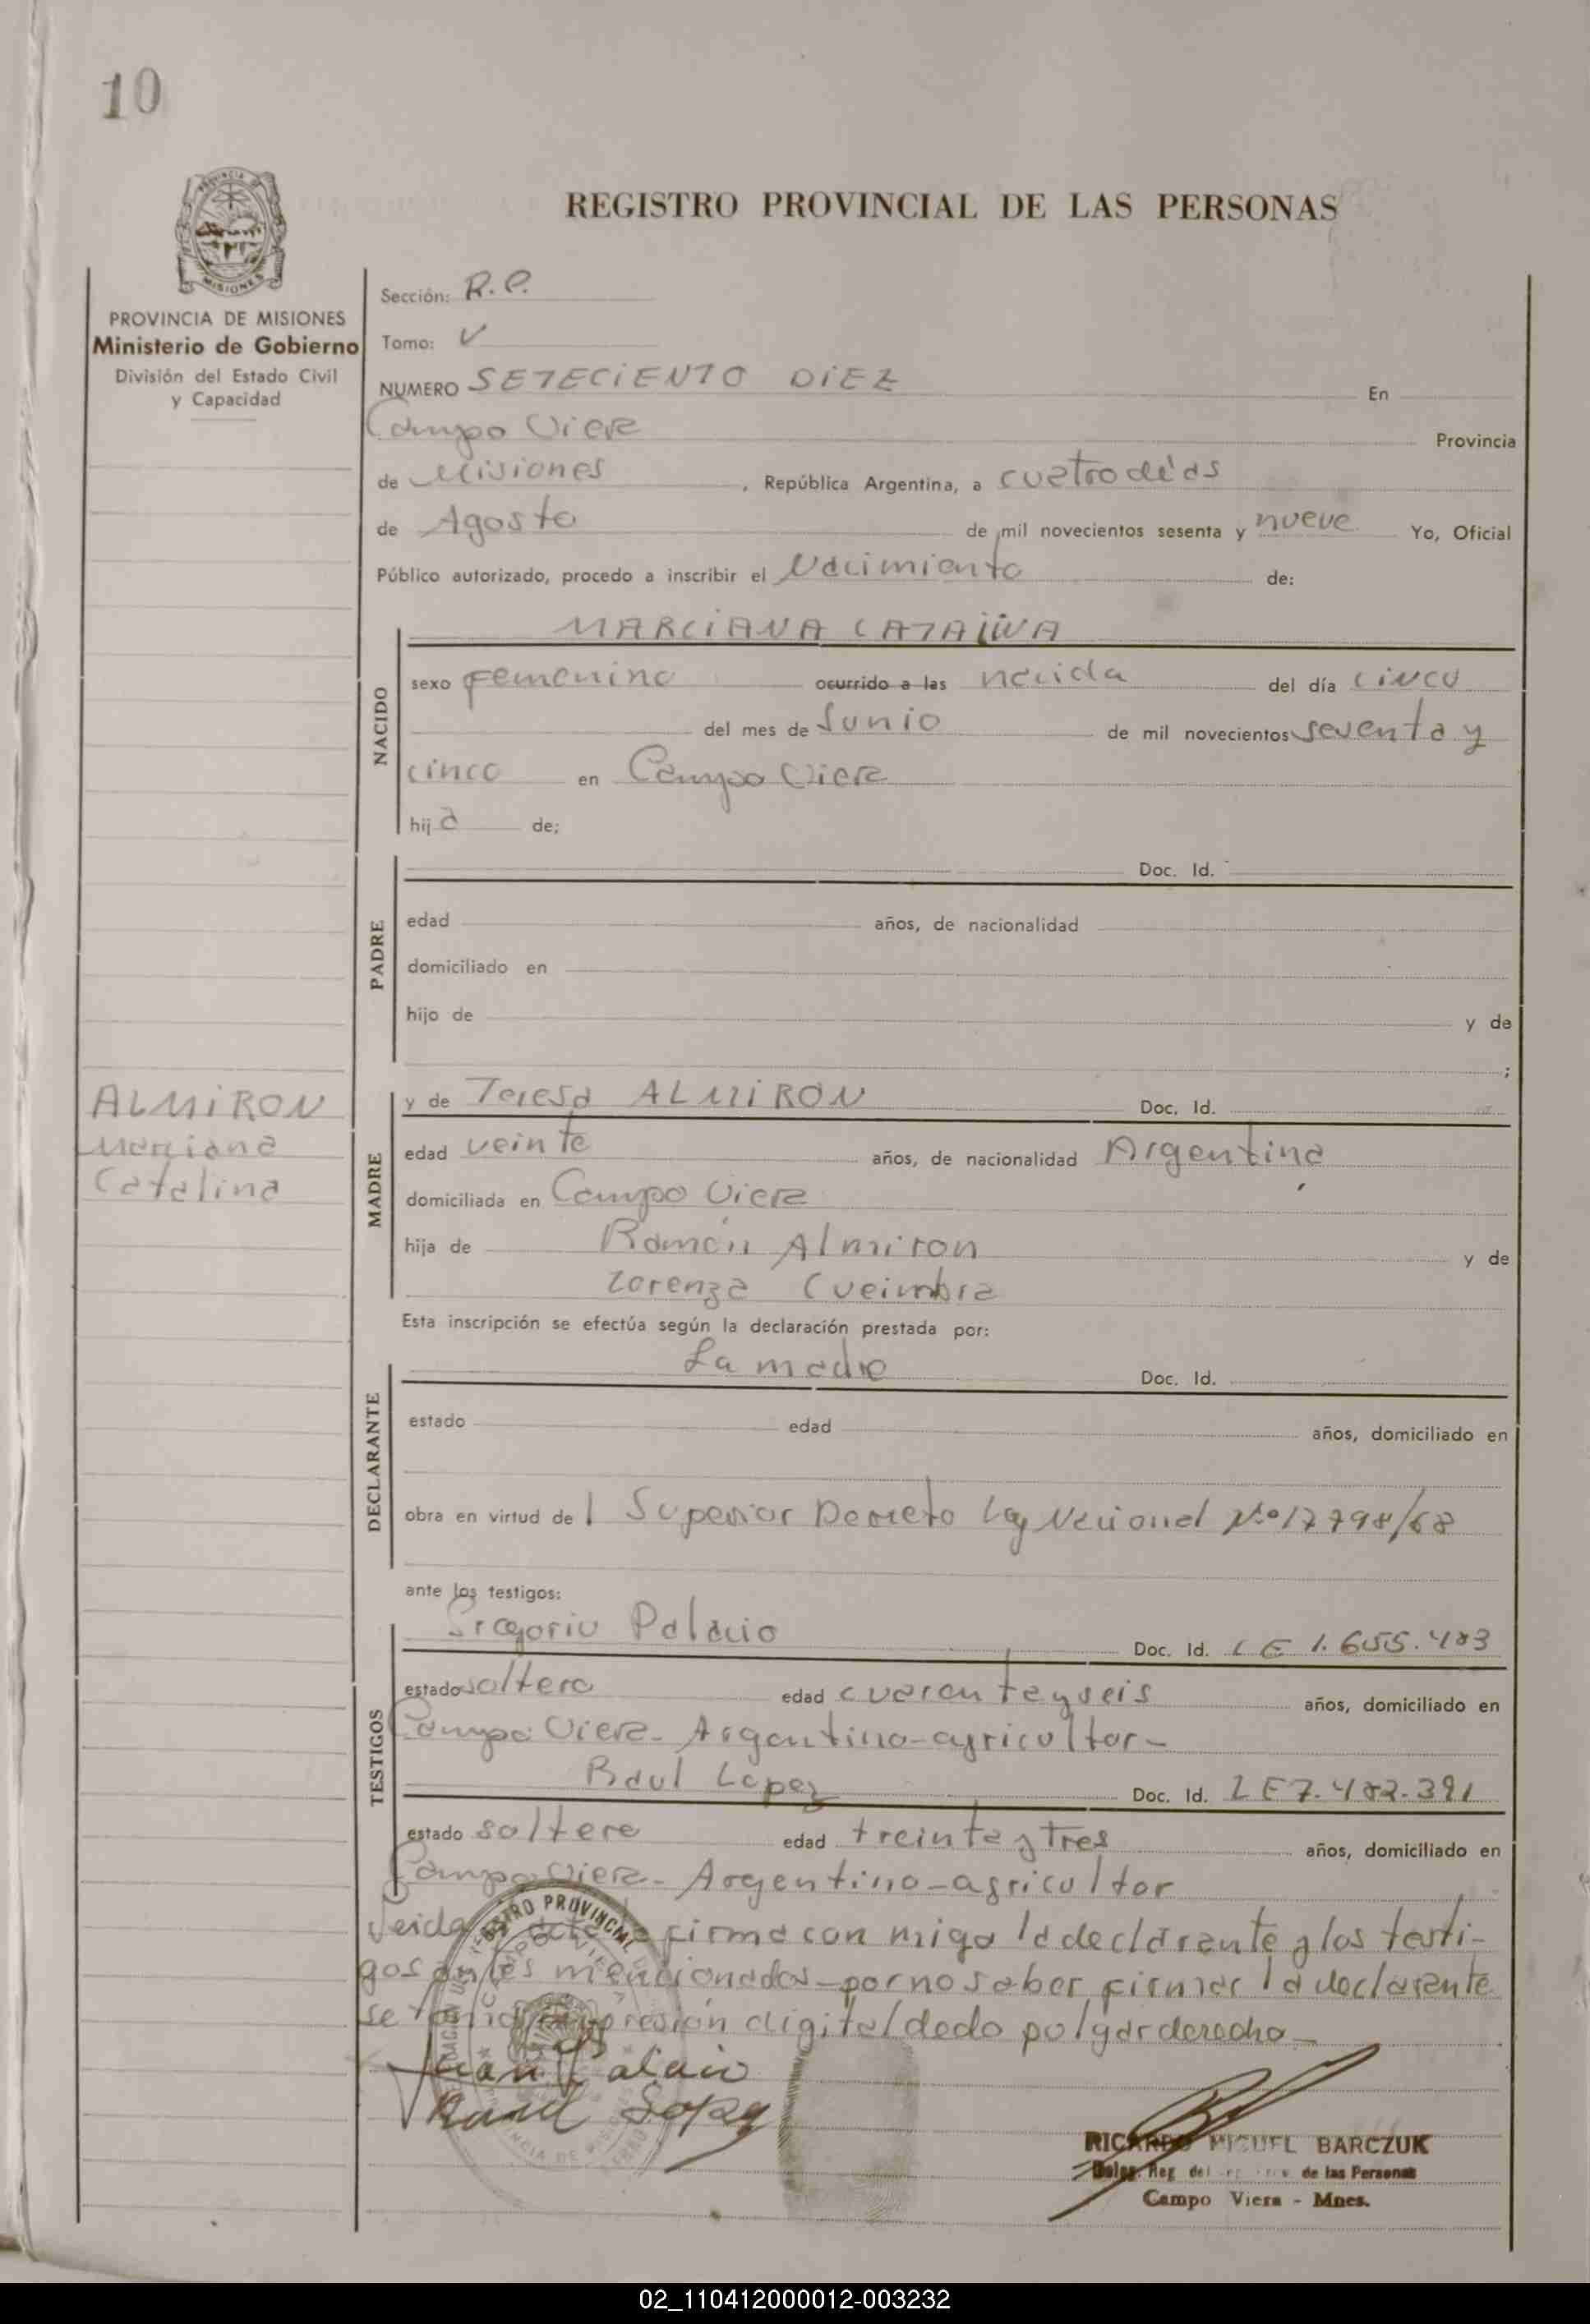 10
PROVINCIA
MISIONES
REGISTRO PROVINCIAL DE LAS PERSONAS
PROVINCIA DE MISIONES
Ministerio de Gobierno
División del Estado Civil
y Capacidad
Sección: R.P.
Tomo: V
NUMERO SETECIENTO DIEZ En
Campo Viera Provincia
de Misiones , República Argentina, a cuatro días
de Agosto de mil novecientos sesenta y nueve Yo, Oficial
Público autorizado, procedo a inscribir el Nacimiento de:
NACIDO
MARCIANA CATALINA
sexo femenino ocurrido a las nacida del día cinco
del mes de Junio de mil novecientos sesenta y
cinco en Campo Viera
hija de;
PADRE
Doc. Id.
edad años, de nacionalidad
domiciliado en
hijo de y de
;
ALMIRON
Marciana
Catalina
MADRE
y de Teresa ALMIRON Doc. Id.
edad veinte años, de nacionalidad Argentina
domiciliada en Campo Viera
hija de Ramón Almiron y de
Lorenza Cueimbra
Esta inscripción se efectúa según la declaración prestada por:
DECLARANTE
La madre Doc. Id.
estado edad años, domiciliado en
obra en virtud del Superior Decreto Ley Nacional Nº 17798/68
ante los testigos:
TESTIGOS
Gregorio Palacio Doc. Id. LE 1.655.483
estado soltero edad cuarenta y seis años, domiciliado en
Campo Viera- Argentino-agricultor-
Raul Lopez Doc. Id. LE 7.482.391
estado soltero edad treinta y tres años, domiciliado en
Campo Viera- Argentino-agricultor
Leida el acta la firma con migo la declarante y los testi-
gos antes mencionados-por no saber firmar la declarante
se toma impresión digital dedo pulgar derecho-
Raul Lopez
RICARDO MIGUEL BARCZUK
Deleg. Reg. del de las Personas
Campo Viera - Mnes.
02_110412000012-003232